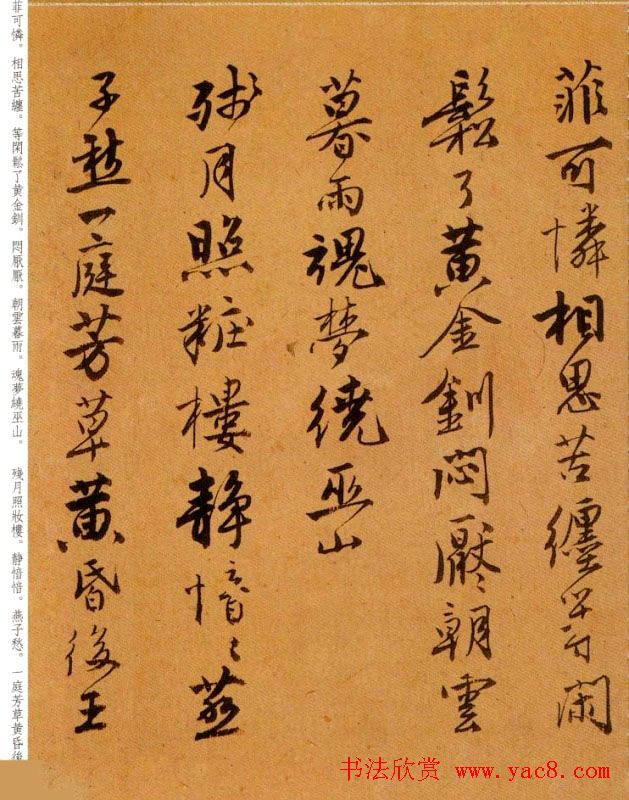 菲可憐相思苦纏等闲
鬆了黄金釧悶厭〻朝雲
暮雨魂梦繞巫山
残月照粧樓静愔〻燕
子愁一庭芳草黄昏後王
菲可憐。相思苦纏。等閑鬆了黄金釧。悶厭厭。朝雲暮雨。魂夢繞巫山。 殘月照妝樓。静愔愔。燕子愁。一庭芳草黄昏後
书法欣赏 www.yac8.com